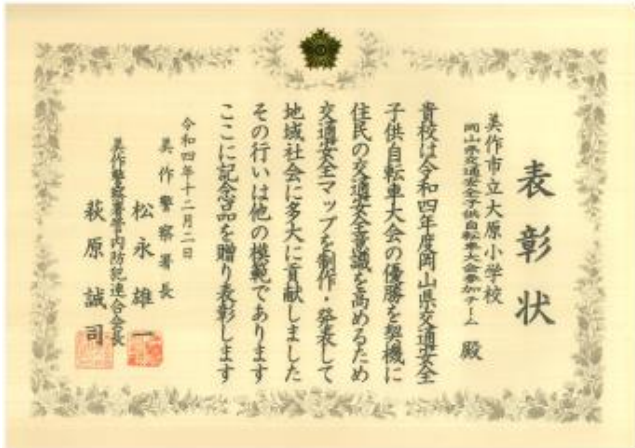 表彰状
美作市立大原小学校
岡山県交通安全子供自転車大会参加チーム 殿
貴校は令和四年度岡山県交通安全
子供自転車大会の優勝を契機に
住民の交通安全意識を高めるため
交通安全マップを制作・発表して
地域社会に多大に貢献しました
その行いは他の模範であります
ここに記念品を贈り表彰します
令和四年十二月二日
美作警察署長
松永雄一
美作警察署管内防犯連合会長
萩原誠司